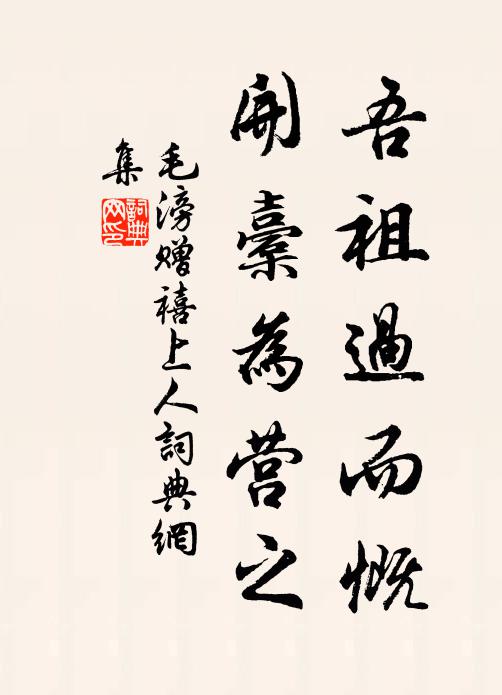 吾祖過而慨
開橐為营之
毛滂贈禧上人詞典網
集
詞典網印